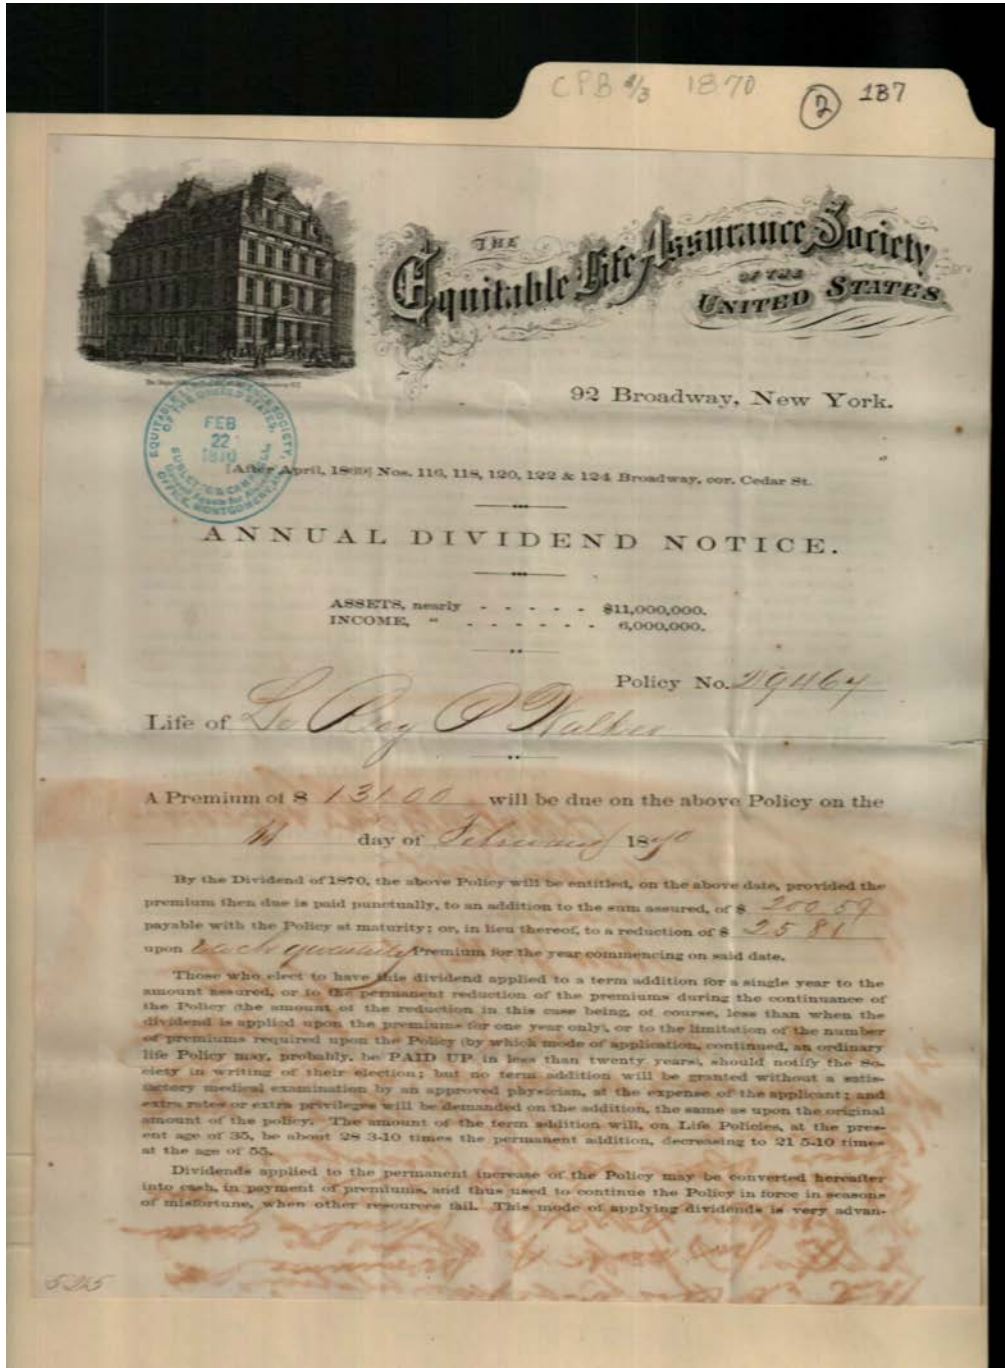 CPB 2/3 1870 2 1B7
THE
Equitable Life Assurance Society
OF THE
UNITED STATES
92 Broadway, New York.
EQUITABLE SOCIETY,
OF THE UNITED STATES.
FEB
22
1870
OFFICE, MONTGOMERY,
[After April, 1869] Nos. 116, 118, 120, 122 & 124 Broadway, cor. Cedar St.
ANNUAL DIVIDEND NOTICE.
ASSETS, nearly - - - - - $11,000,000.
INCOME, " - - - - - - 6,000,000.
Policy No. 29464
Life of Le Roy P Walker
A Premium of $ 131.00 will be due on the above Policy on the
day of February 1870
By the Dividend of 1870, the above Policy will be entitled, on the above date, provided the
premium then due is paid punctually, to an addition to the sum assured, of $ 200 59
payable with the Policy at maturity; or, in lieu thereof, to a reduction of $ 25 81
upon each quarterly Premium for the year commencing on said date.
Those who elect to have this dividend applied to a term addition for a single year to the
amount assured, or to the permanent reduction of the premiums during the continuance of
the Policy (the amount of the reduction in this case being, of course, less than when the
dividend is applied upon the premiums for one year only), or to the limitation of the number
of premiums required upon the Policy (by which mode of application, continued, an ordinary
life Policy may, probably, be PAID UP in less than twenty years), should notify the So-
ciety in writing of their election; but no term addition will be granted without a satis-
factory medical examination by an approved physician, at the expense of the applicant; and
extra rates or extra privileges will be demanded on the addition, the same as upon the original
amount of the policy. The amount of the term addition will, on Life Policies, at the pres-
ent age of 35, be about 28 3-10 times the permanent addition, decreasing to 21 5-10 times
at the age of 55.
Dividends applied to the permanent increase of the Policy may be converted hereafter
into cash, in payment of premiums, and thus used to continue the Policy in force in seasons
of misfortune, when other resources fail. This mode of applying dividends is very advan-
525